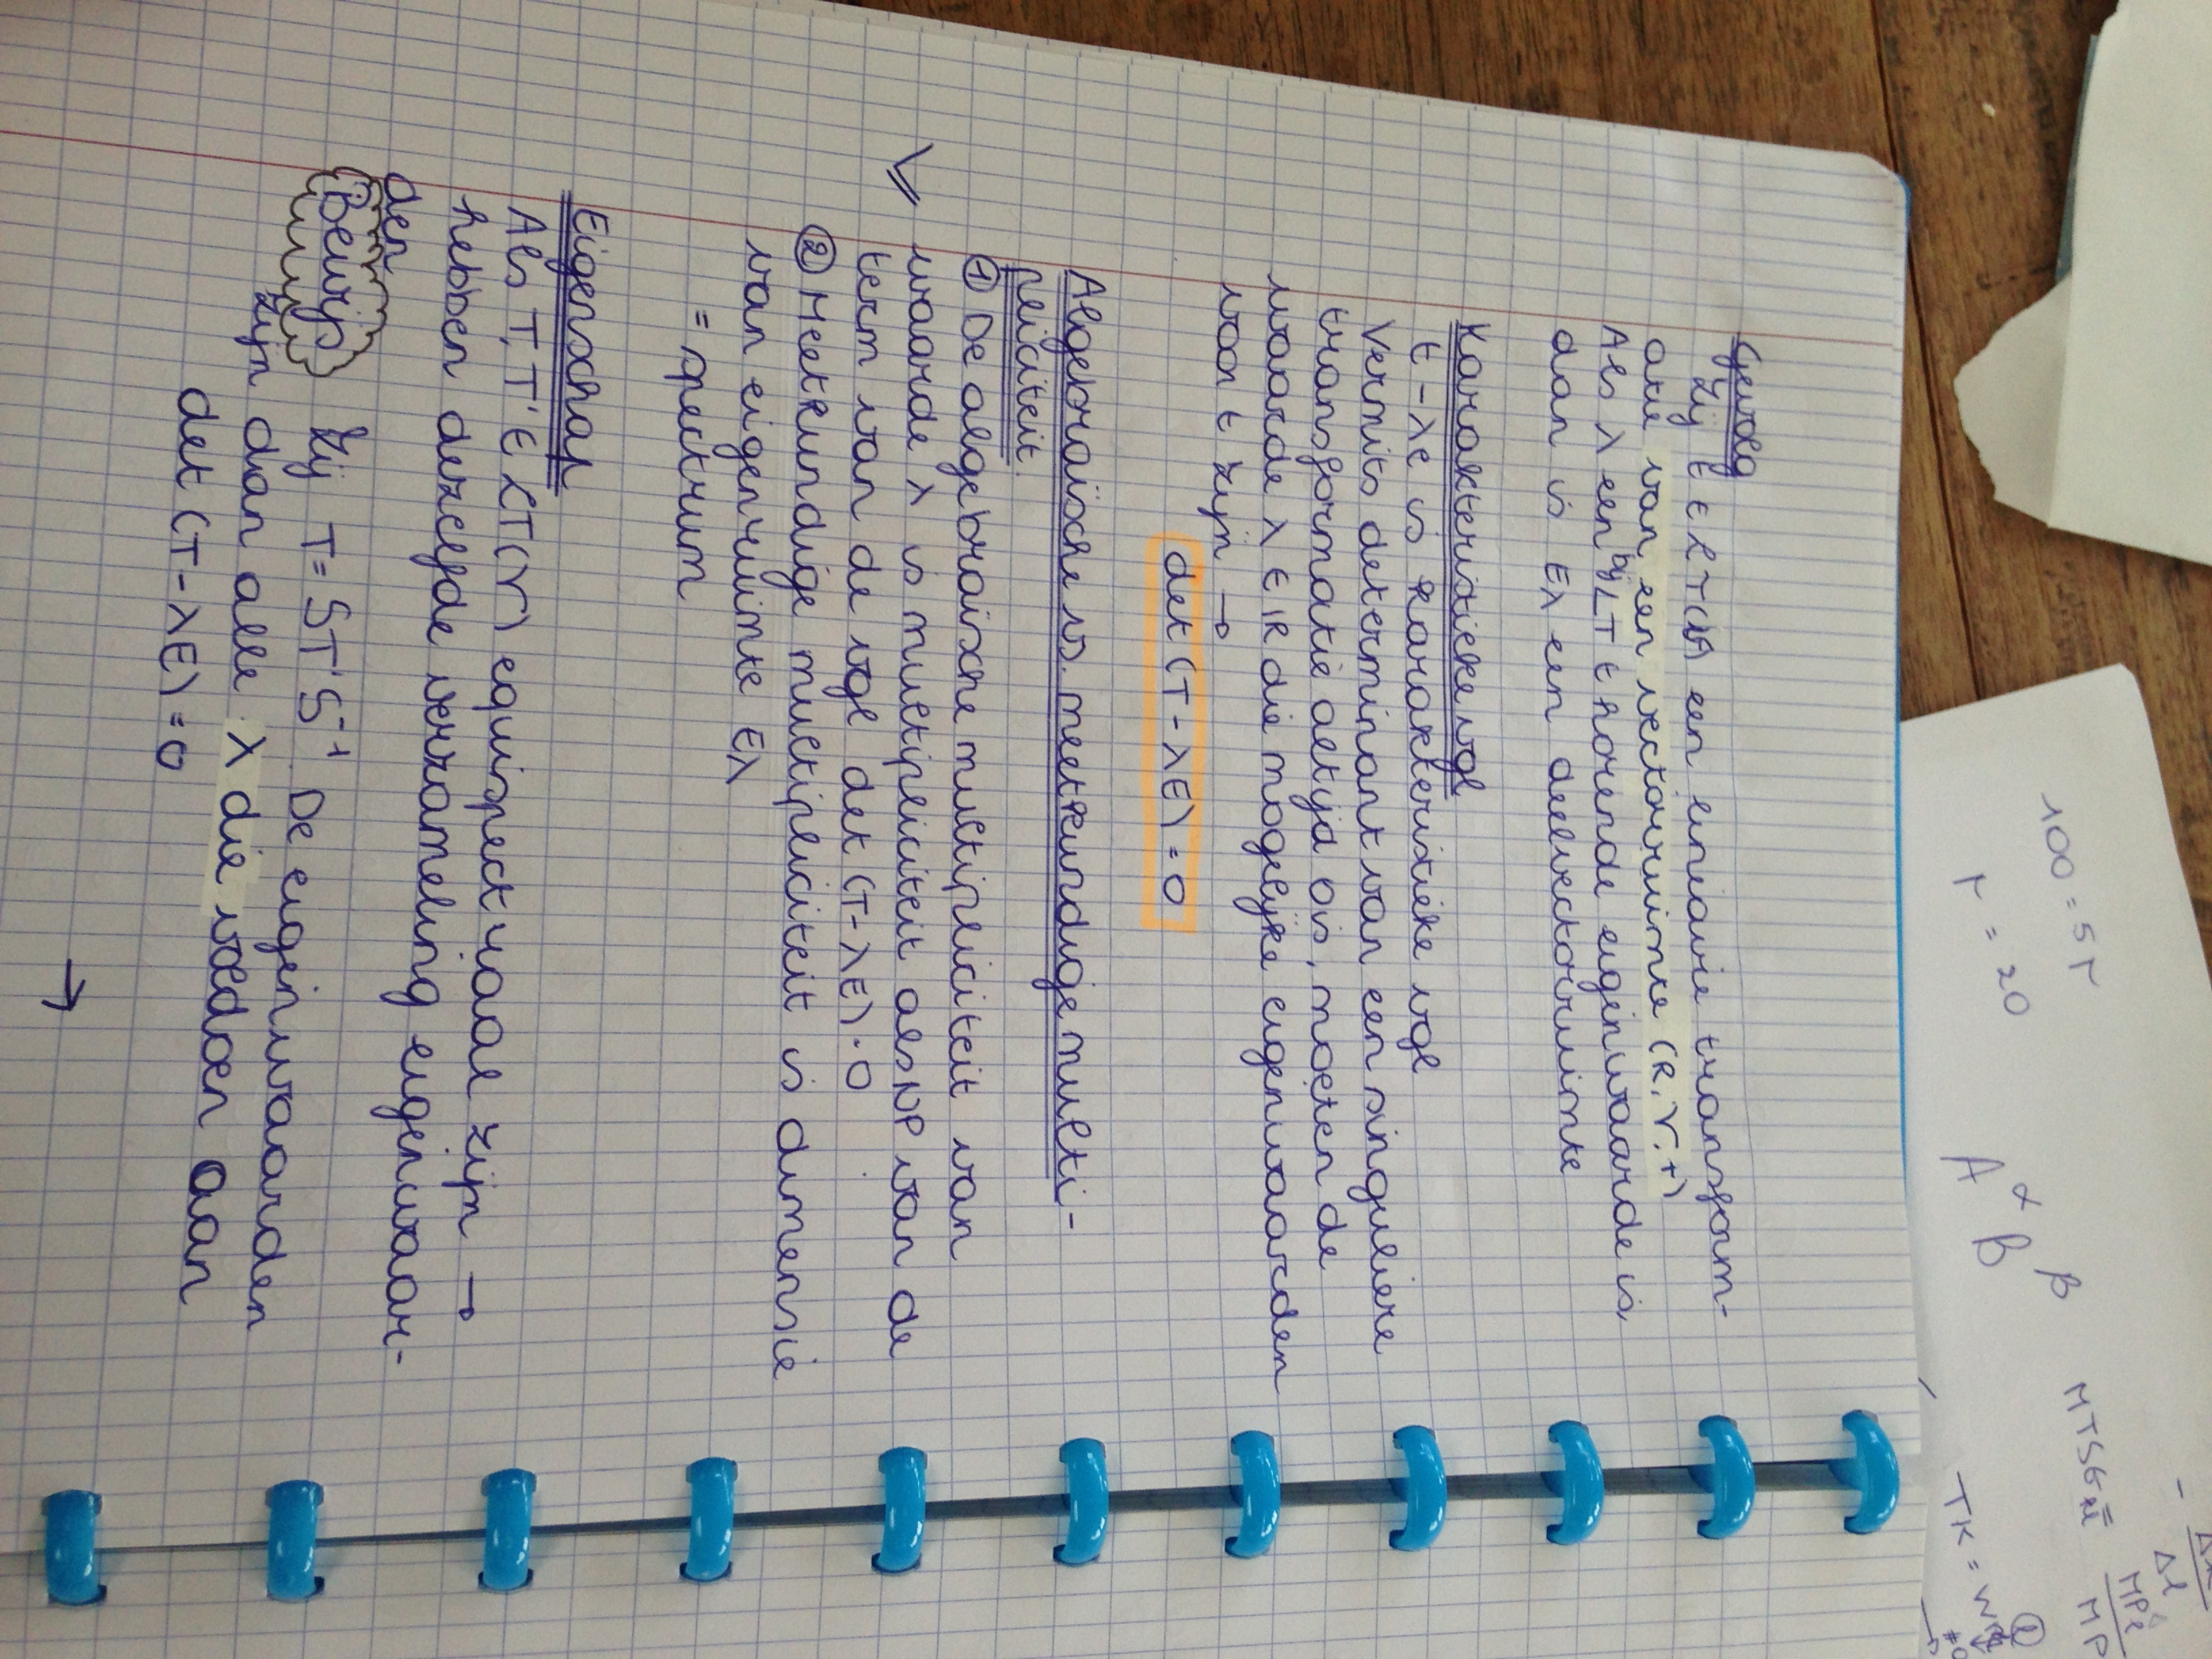 Gevolg
Zij t ∈ LT(V) een lineaire transform-
atie van een vectorruimte (R, V, +)
Als λ een bij LT t horende eigenwaarde is,
dan is Eλ een deelvectorruimte
Karakteristieke vgl
t - λe is karakteristieke vgl
Vermits determinant van een singuliere
transformatie altijd 0 is, moeten de
waarde λ ∈ ℝ die mogelijke eigenwaarden
van t zijn →
det (T - λE) = 0
Algebraïsche vs. meetkundige multi-
pliciteit
① De algebraïsche multipliciteit van
waarde λ is multipliciteit als opl van de
term van de vgl det (T - λE) = 0
② Meetkundige multipliciteit is dimensie
van eigenruimte Eλ
= spectrum
Eigenschap
Als T, T' ∈ LT(V) equispectraal zijn →
hebben dezelfde verzameling eigenwaar-
den
Bewijs Zij T = ST'S⁻¹ De eigenwaarden
zijn dan alle λ die voldoen aan
det (T - λE) = 0
→
100 = 5r
r = 20
A α B β
MTSG
TK = W
①
Δl
MPl
MP